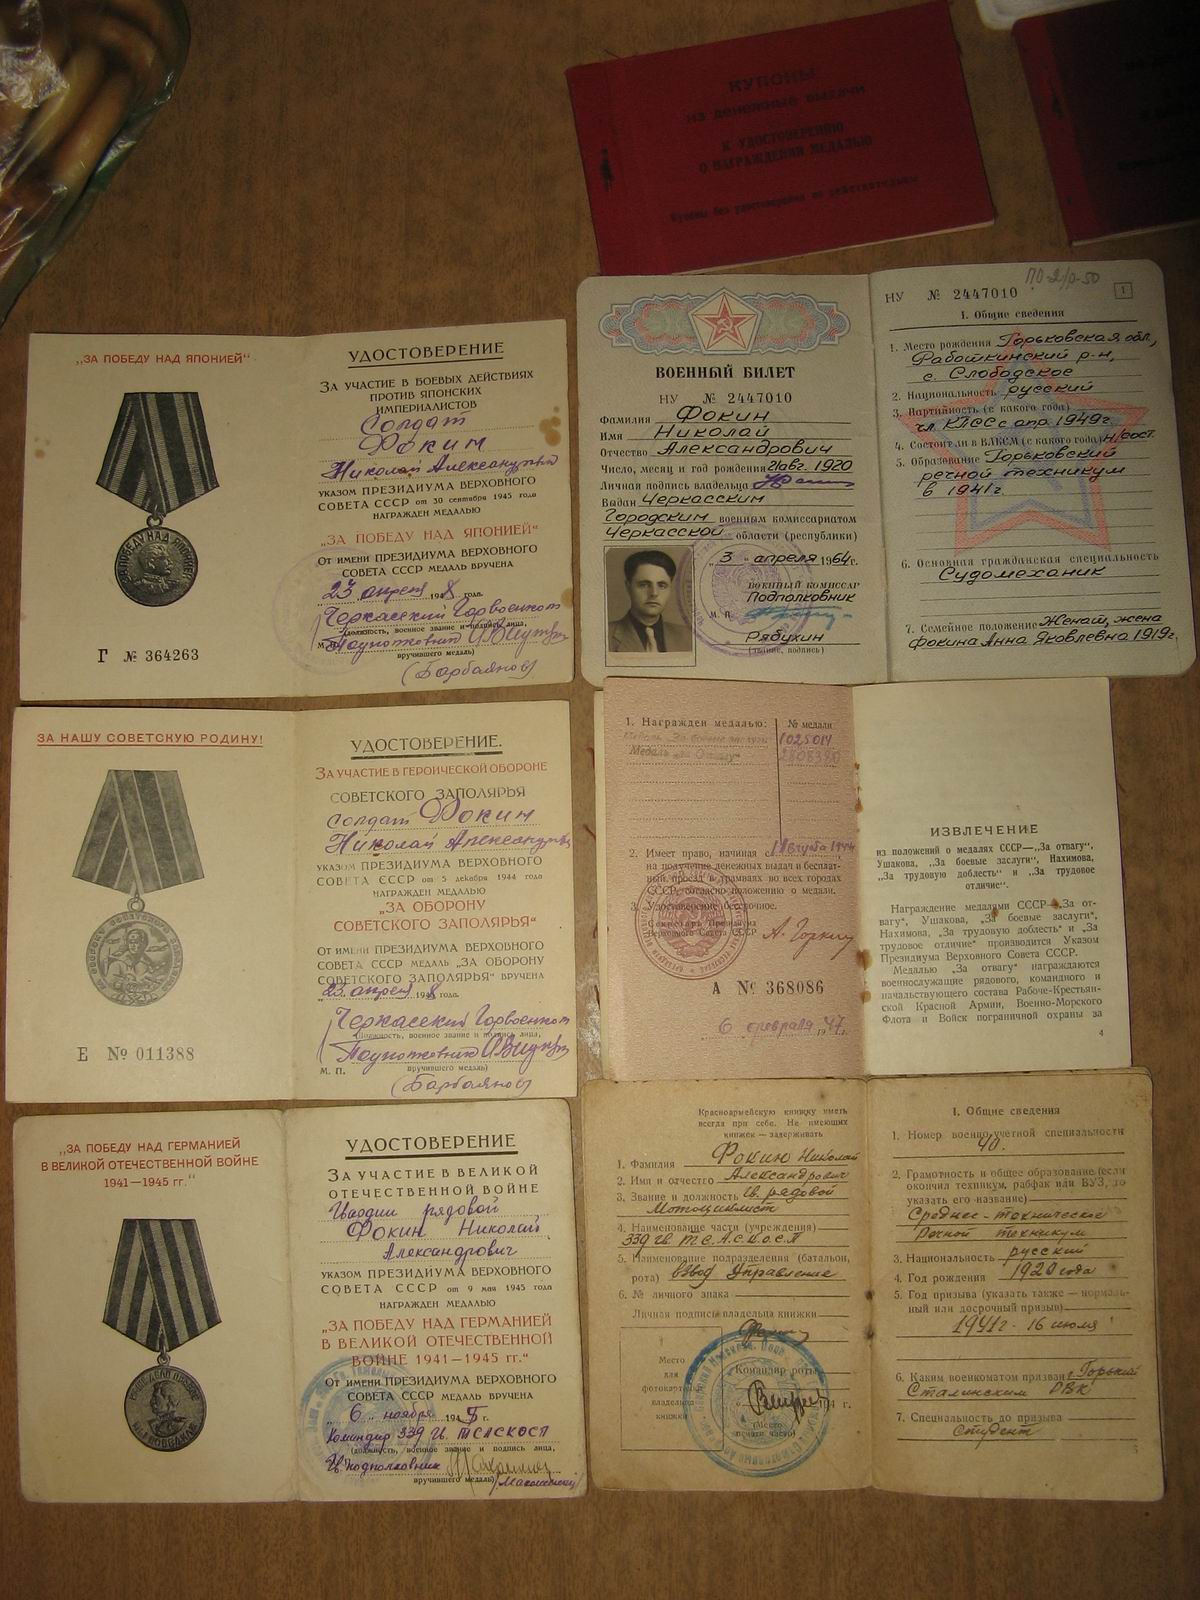 КУПОНЫ
на денежные выдачи
К УДОСТОВЕРЕНИЮ
О НАГРАЖДЕНИИ МЕДАЛЬЮ
Купоны без удостоверения не действительны
„ЗА ПОБЕДУ НАД ЯПОНИЕЙ“
Г № 364263
УДОСТОВЕРЕНИЕ
ЗА УЧАСТИЕ В БОЕВЫХ ДЕЙСТВИЯХ
ПРОТИВ ЯПОНСКИХ
ИМПЕРИАЛИСТОВ
Солдат
Фокин
Николай Александрович
УКАЗОМ ПРЕЗИДИУМА ВЕРХОВНОГО
СОВЕТА СССР от 30 сентября 1945 года
НАГРАЖДЕН МЕДАЛЬЮ
„ЗА ПОБЕДУ НАД ЯПОНИЕЙ“
ОТ ИМЕНИ ПРЕЗИДИУМА ВЕРХОВНОГО
СОВЕТА СССР МЕДАЛЬ ВРУЧЕНА
„23 апреля 1948 года.
Черкасский Горвоенком
(должность, военное звание и подпись лица,
М. П. Подполковник
вручившего медаль)
(Барбаянов)
ВОЕННЫЙ БИЛЕТ
НУ № 2447010
Фамилия Фокин
Имя Николай
Отчество Александрович
Число, месяц и год рождения 21 авг. 1920
Личная подпись владельца
Выдан Черкасским
Городским военным комиссариатом
Черкасской области (республики)
„3“ апреля 1964 г.
ВОЕННЫЙ КОМИССАР
Подполковник
М. П.
Рябухин
(звание, подпись)
НУ № 2447010
1
I. Общие сведения
1. Место рождения Горьковская обл.,
Работкинский р-н,
с. Слободское
2. Национальность русский
3. Партийность (с какого года)
чл. КПСС с апр. 1949г.
4. Состоял ли в ВЛКСМ (с какого года) н/сост.
5. Образование Горьковский
речной техникум
в 1941г.
6. Основная гражданская специальность
Судомеханик
7. Семейное положение Женат, жена
Фокина Анна Яковлевна 1919г.
ЗА НАШУ СОВЕТСКУЮ РОДИНУ!
Е № 011388
УДОСТОВЕРЕНИЕ.
ЗА УЧАСТИЕ В ГЕРОИЧЕСКОЙ ОБОРОНЕ
СОВЕТСКОГО ЗАПОЛЯРЬЯ
Солдат Фокин
Николай Александрович
УКАЗОМ ПРЕЗИДИУМА ВЕРХОВНОГО
СОВЕТА СССР от 5 декабря 1944 года
НАГРАЖДЕН МЕДАЛЬЮ
„ЗА ОБОРОНУ
СОВЕТСКОГО ЗАПОЛЯРЬЯ“
ОТ ИМЕНИ ПРЕЗИДИУМА ВЕРХОВНОГО
СОВЕТА СССР МЕДАЛЬ „ЗА ОБОРОНУ
СОВЕТСКОГО ЗАПОЛЯРЬЯ“ ВРУЧЕНА
„23“ апреля 1948 года.
Черкасский Горвоенком
(должность, военное звание и подпись лица,
Подполковник
М. П. вручившего медаль)
(Барбаянов)
1. Награжден медалью:
№ медали
Медаль „За боевые заслуги“ 1025014
Медаль „За Отвагу“
2. Имеет право, начиная с 1 Августа 1944
на получение денежных выдач и бесплат-
ный проезд в трамваях во всех городах
СССР, согласно положению о медали.
3. Удостоверение бессрочное.
Секретарь Президиума
Верховного Совета СССР А. Горкин
А № 368086
6 февраля 1947 г.
ИЗВЛЕЧЕНИЕ
из положений о медалях СССР—„За отвагу“,
Ушакова, „За боевые заслуги“, Нахимова,
„За трудовую доблесть“ и „За трудовое
отличие“.
Награждение медалями СССР—„За от-
вагу“, Ушакова, „За боевые заслуги“,
Нахимова, „За трудовую доблесть“ и „За
трудовое отличие“ производится Указом
Президиума Верховного Совета СССР.
Медалью „За отвагу“ награждаются
военнослужащие рядового, командного и
начальствующего состава Рабоче-Крестьян-
ской Красной Армии, Военно-Морского
Флота и Войск пограничной охраны за
4
„ЗА ПОБЕДУ НАД ГЕРМАНИЕЙ
В ВЕЛИКОЙ ОТЕЧЕСТВЕННОЙ ВОЙНЕ
1941—1945 гг.“
УДОСТОВЕРЕНИЕ
ЗА УЧАСТИЕ В ВЕЛИКОЙ
ОТЕЧЕСТВЕННОЙ ВОЙНЕ
Гвардии рядовой
Фокин Николай
Александрович
УКАЗОМ ПРЕЗИДИУМА ВЕРХОВНОГО
СОВЕТА СССР от 9 мая 1945 года
НАГРАЖДЕН МЕДАЛЬЮ
„ЗА ПОБЕДУ НАД ГЕРМАНИЕЙ
В ВЕЛИКОЙ ОТЕЧЕСТВЕННОЙ
ВОЙНЕ 1941—1945 гг.“
ОТ ИМЕНИ ПРЕЗИДИУМА ВЕРХОВНОГО
СОВЕТА СССР МЕДАЛЬ ВРУЧЕНА
„6“ ноября 1945 г.
Командир 339 Гв. ТСАСКОСП
(должность, военное звание и подпись лица,
Гв. подполковник
вручившего медаль)
Красноармейскую книжку иметь
всегда при себе. Не имеющих
книжек — задерживать
1. Фамилия Фокин Николай
2. Имя и отчество Александрович
3. Звание и должность Гв. рядовой
Мотоциклист
4. Наименование части (учреждения)
339 Гв. Т.С.А.С.К.О.С.П
5. Наименование подразделения (батальон,
рота) взвод Управление
6. № личного знака
Личная подпись владельца книжки
Место
для
фотокарточки
владельца
книжки
Командир роты
194 г.
(Место
печати части)
I. Общие сведения
1. Номер военно-учетной специальности
40.
2. Грамотность и общее образование (если
окончил техникум, рабфак или ВУЗ, то
указать его название)
Среднее-техническое
Речной техникум
3. Национальность русский
4. Год рождения 1920 года
5. Год призыва (указать также — нормаль-
ный или досрочный призыв)
1941г. 16 июля
6. Каким военкоматом призван г. Горький
Сталинским РВК
7. Специальность до призыва
студент